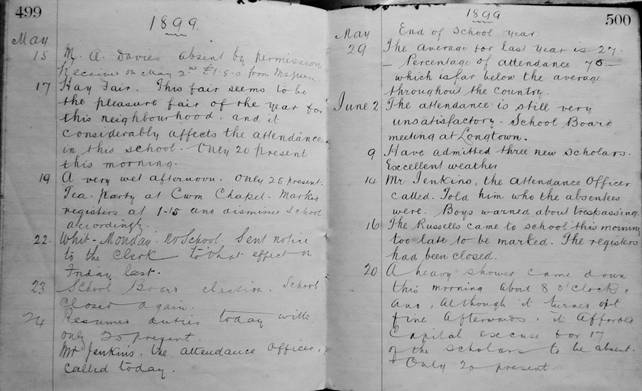 499
1899
May
15 M. A. Davies absent by permission
Received on May 2nd £1-5-0 from
17 Hay Fair. This fair seems to be
the pleasure fair of the year for
this neighbourhood. and it
considerably affects the attendance
in this school. Only 20 present
this morning.
19 A very wet afternoon. Only 25 present.
Tea party at Cwm Chapel. Marked
registers at 1-15 and dismissed School
accordingly.
22 Whit-Monday. No School. Sent notice
to the Clerk to that effect on
Friday last.
23 School Board election. School
closed again.
24 Resumed duties today with
only 25 present.
Mr Jenkins, the attendance Officer,
called today.
500
1899
May End of School Year
29 The Average for last year is 27.
- Percentage of attendance 70 -
which is far below the average
throughout the country.
June 2 The attendance is still very
unsatisfactory. School Board
meeting at Longtown.
9 Have admitted three new scholars.
Excellent weather
14 Mr Jenkins, the Attendance Officer
called. Told him who the absentees
were. Boys warned about trespassing.
16 The Russells came to school this morning
too late to be marked. The registers
had been closed.
20 A heavy shower came down
this morning about 8 o'clock,
and, although it turned out
fine afterwards, it afforded
Capital excuse for 17
of the scholars to be absent.
Only 20 present